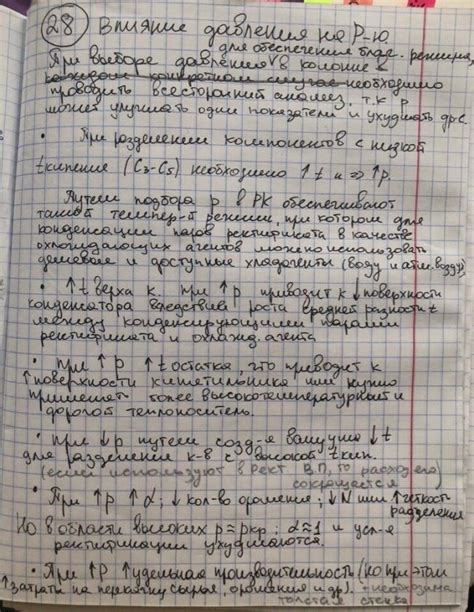 28 Влияние давления на Р-ю
для обеспечения благ. режима,
При выборе давления V в колонне в
каждом конкретном случае необходимо
проводить всесторонний анализ, т.к р
может улучшать одни показатели и ухудшать др-е.
• При разделении компонентов с низкой
tкипение (С3-С5) необходимо ↑ t и => ↑ р.
Путем подбора р в РК обеспечивают
такой темпер-й режим, при котором для
конденсации паров ректификата в качестве
охлождающих агентов можно использовать
дешевые и доступные хладагенты (воду и атм. воздух)
• ↑ t верха к. при ↑ р приводит к ↓ поверхности
конденсатора вследствии роста средней разности t
между конденсирующими парами
ректификата и охлажд. агента
• при ↑ р ↑ t остатка, что приводит к
↑ поверхности кипятильника или нужно
применять более высокотемпературный и
дорогой теплоноситель.
• при ↓ р путем созд-я вакуума ↓ t
для разделения к-в с высокой tкип.
(если используют в Рект В.П, то расход его
сокращается)
• При ↑ р ↑ α; ↓ кол-во орошения; ↓ N или ↑ четкость
разделения
Но в области высоких р ≈ ркр; α ≈ 1 и усл-я
ректификации ухудшаются.
• При ↑ Р ↑ удельная производительность (но при этом
↑ затраты на перекачку сырья, орошения и др). • необходима
толстая стенка